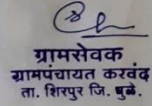 ग्रामसेवक
ग्रामपंचायत करवंद
ता. शिरपुर जि. धुळे.